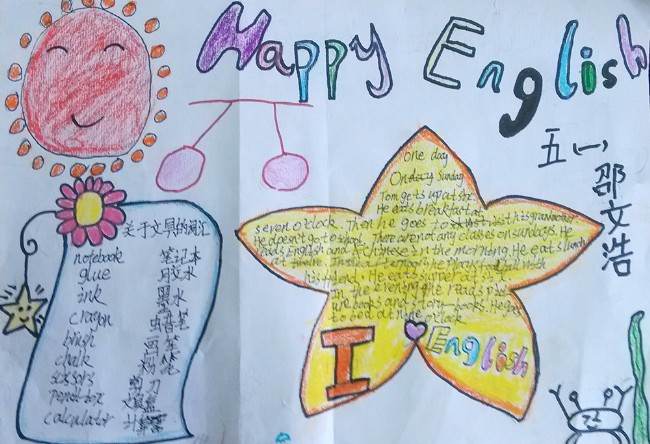 Happy English
五(一)
邵文浩
关于文具的词汇
notebook 笔记本
glue 胶水
ink 墨水
crayon 蜡笔
brush 画笔
chalk 粉笔
scissors 剪刀
pencil-box 文具盒
calculator 计算器
One day
On day Sunday
Tom gets up at six
He eats breakfast at
seven o'clock. Then he goes to visit his grandmother
He doesn't go to school. There are not any classes on sundays. He
reads English and Chinese in the morning. He eats lunch
his He eats supper
In the evening he reads
books and story-books. He goes
to bed at nine o'clock
I English